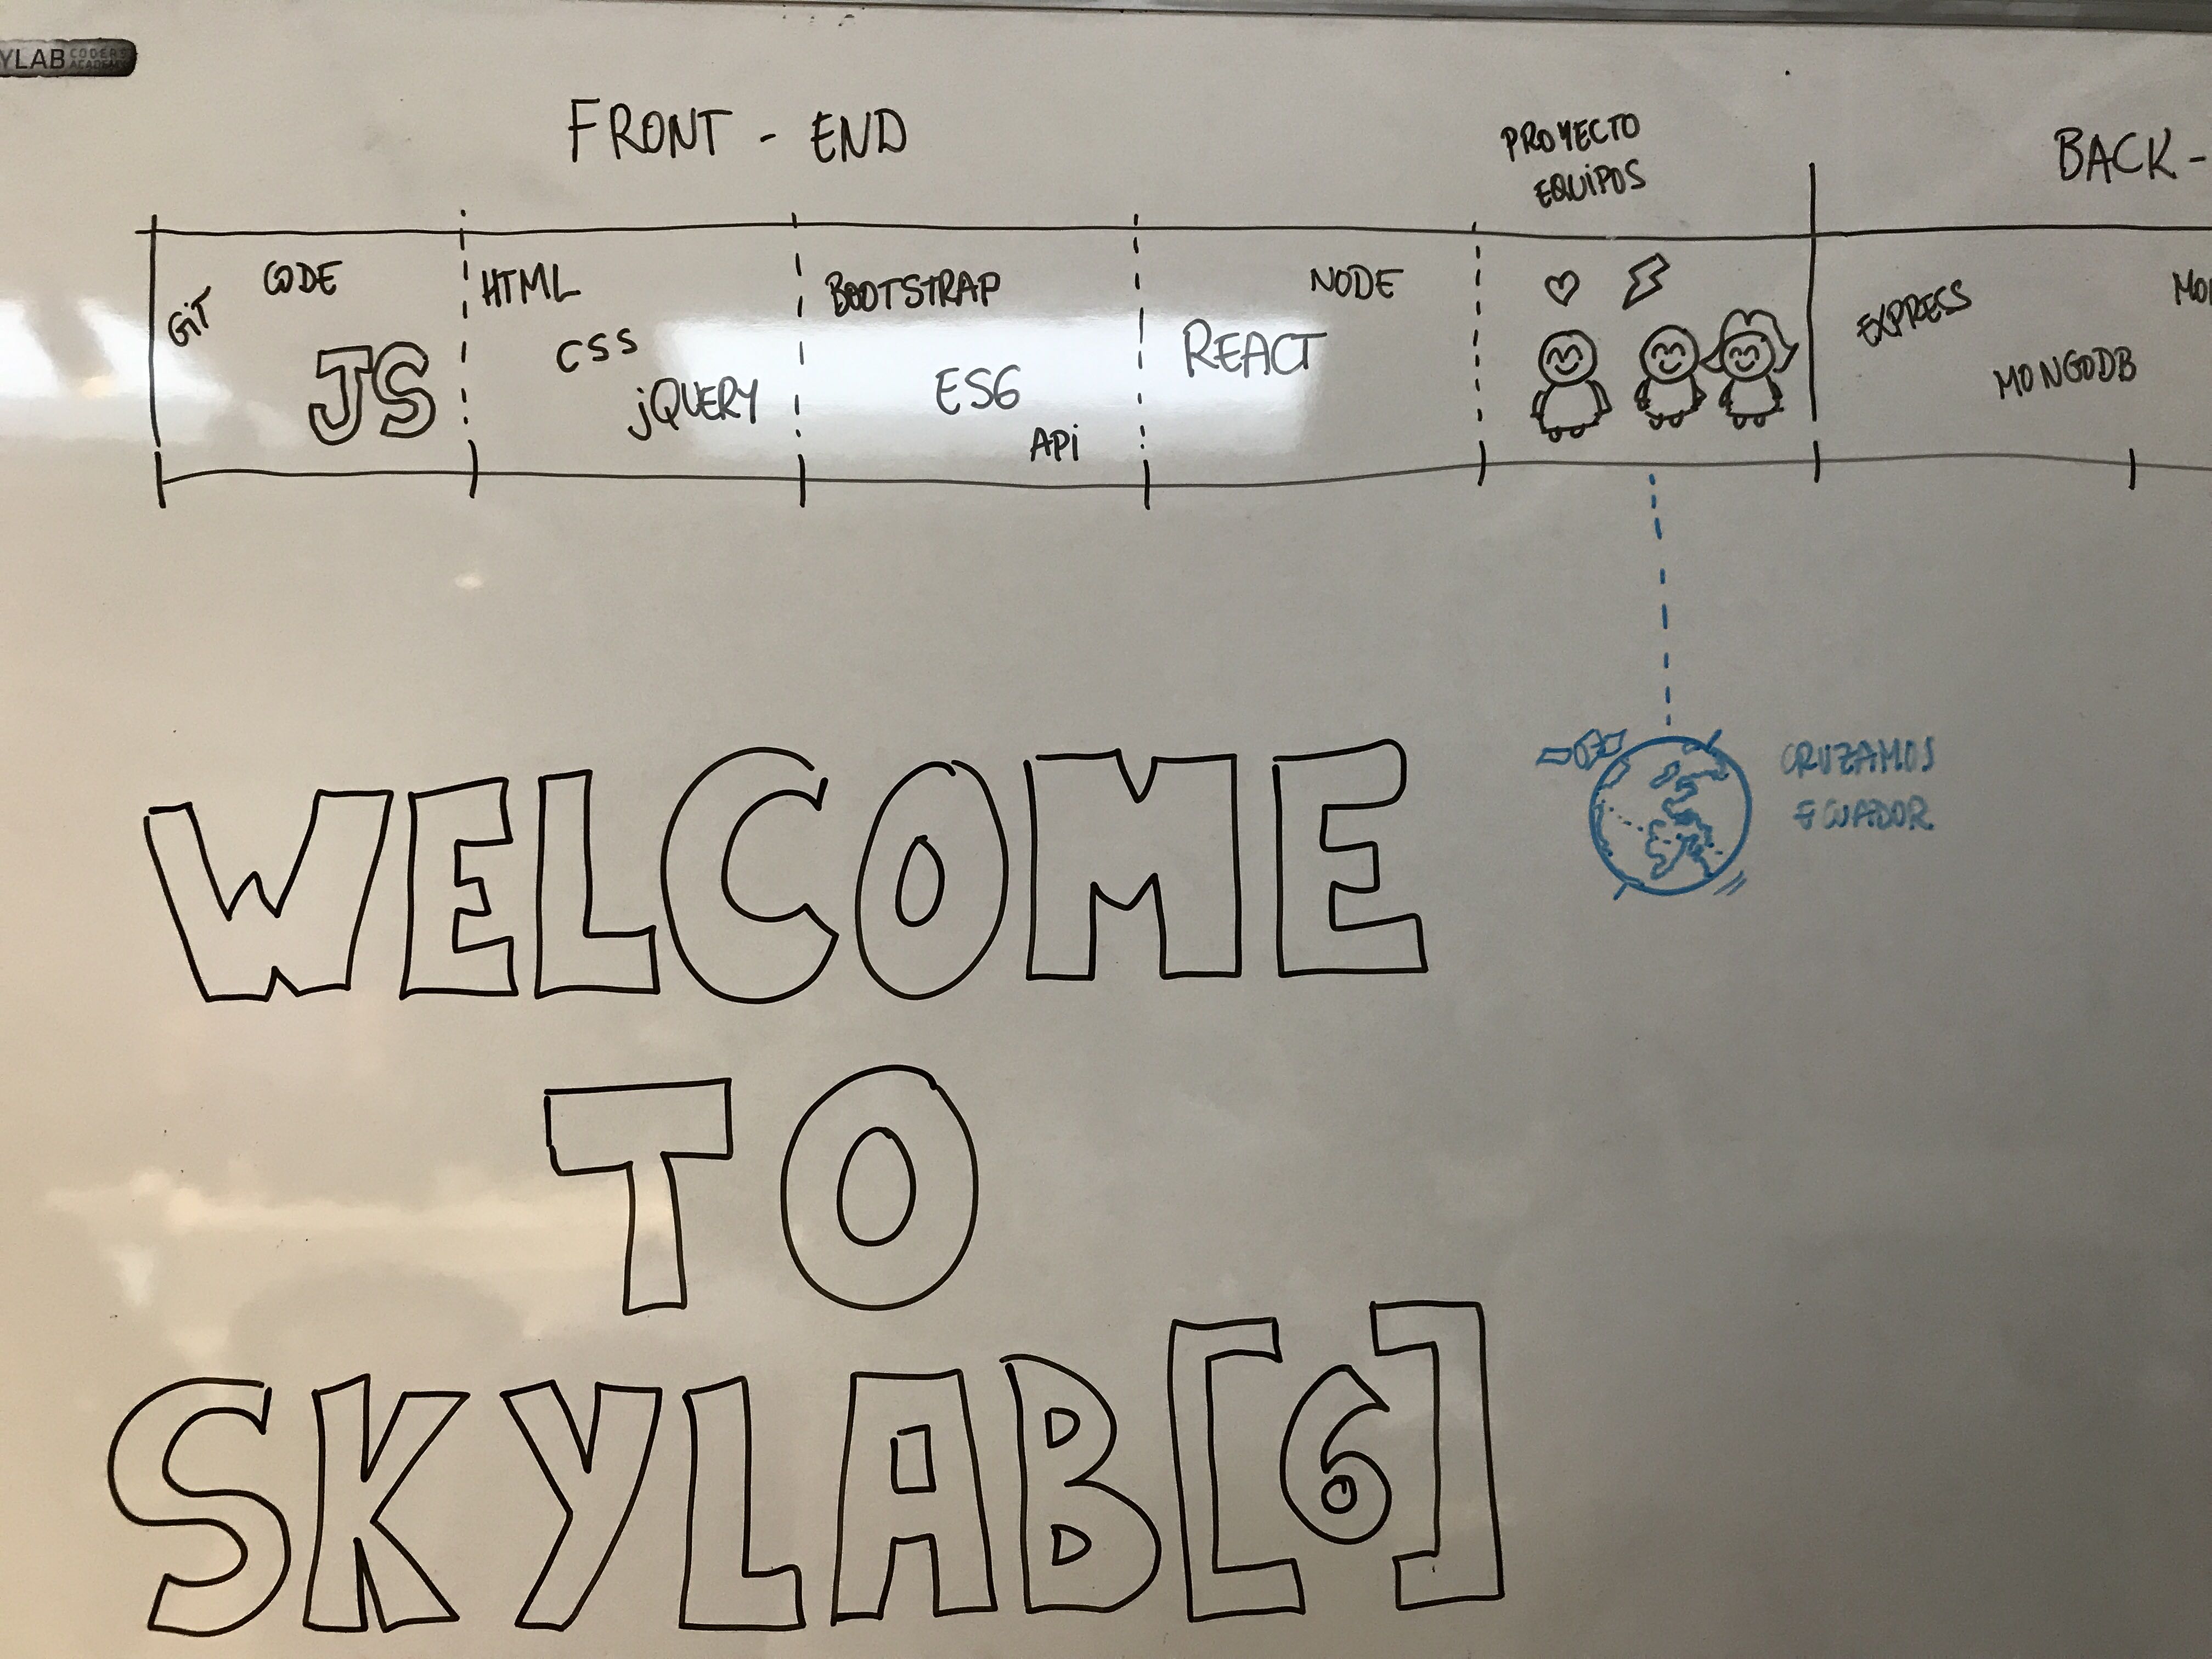 YLAB CODERS ACADEMY
FRONT - END
PROYECTO
EQUIPOS
BACK-
GIT
CODE
JS
HTML
CSS
jQUERY
BOOTSTRAP
ES6
API
REACT
NODE
EXPRESS
MONGODB
MO
CRUZAMOS
ECUADOR
WELCOME
TO
SKYLAB[6]